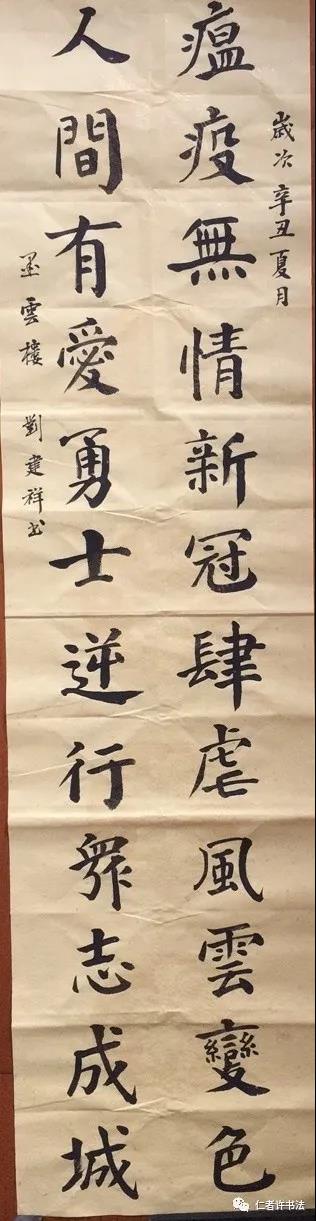 歲次辛丑夏月
瘟疫無情新冠肆虐風雲變色
人間有愛勇士逆行眾志成城
墨雲樓 劉建祥书
仁者许书法